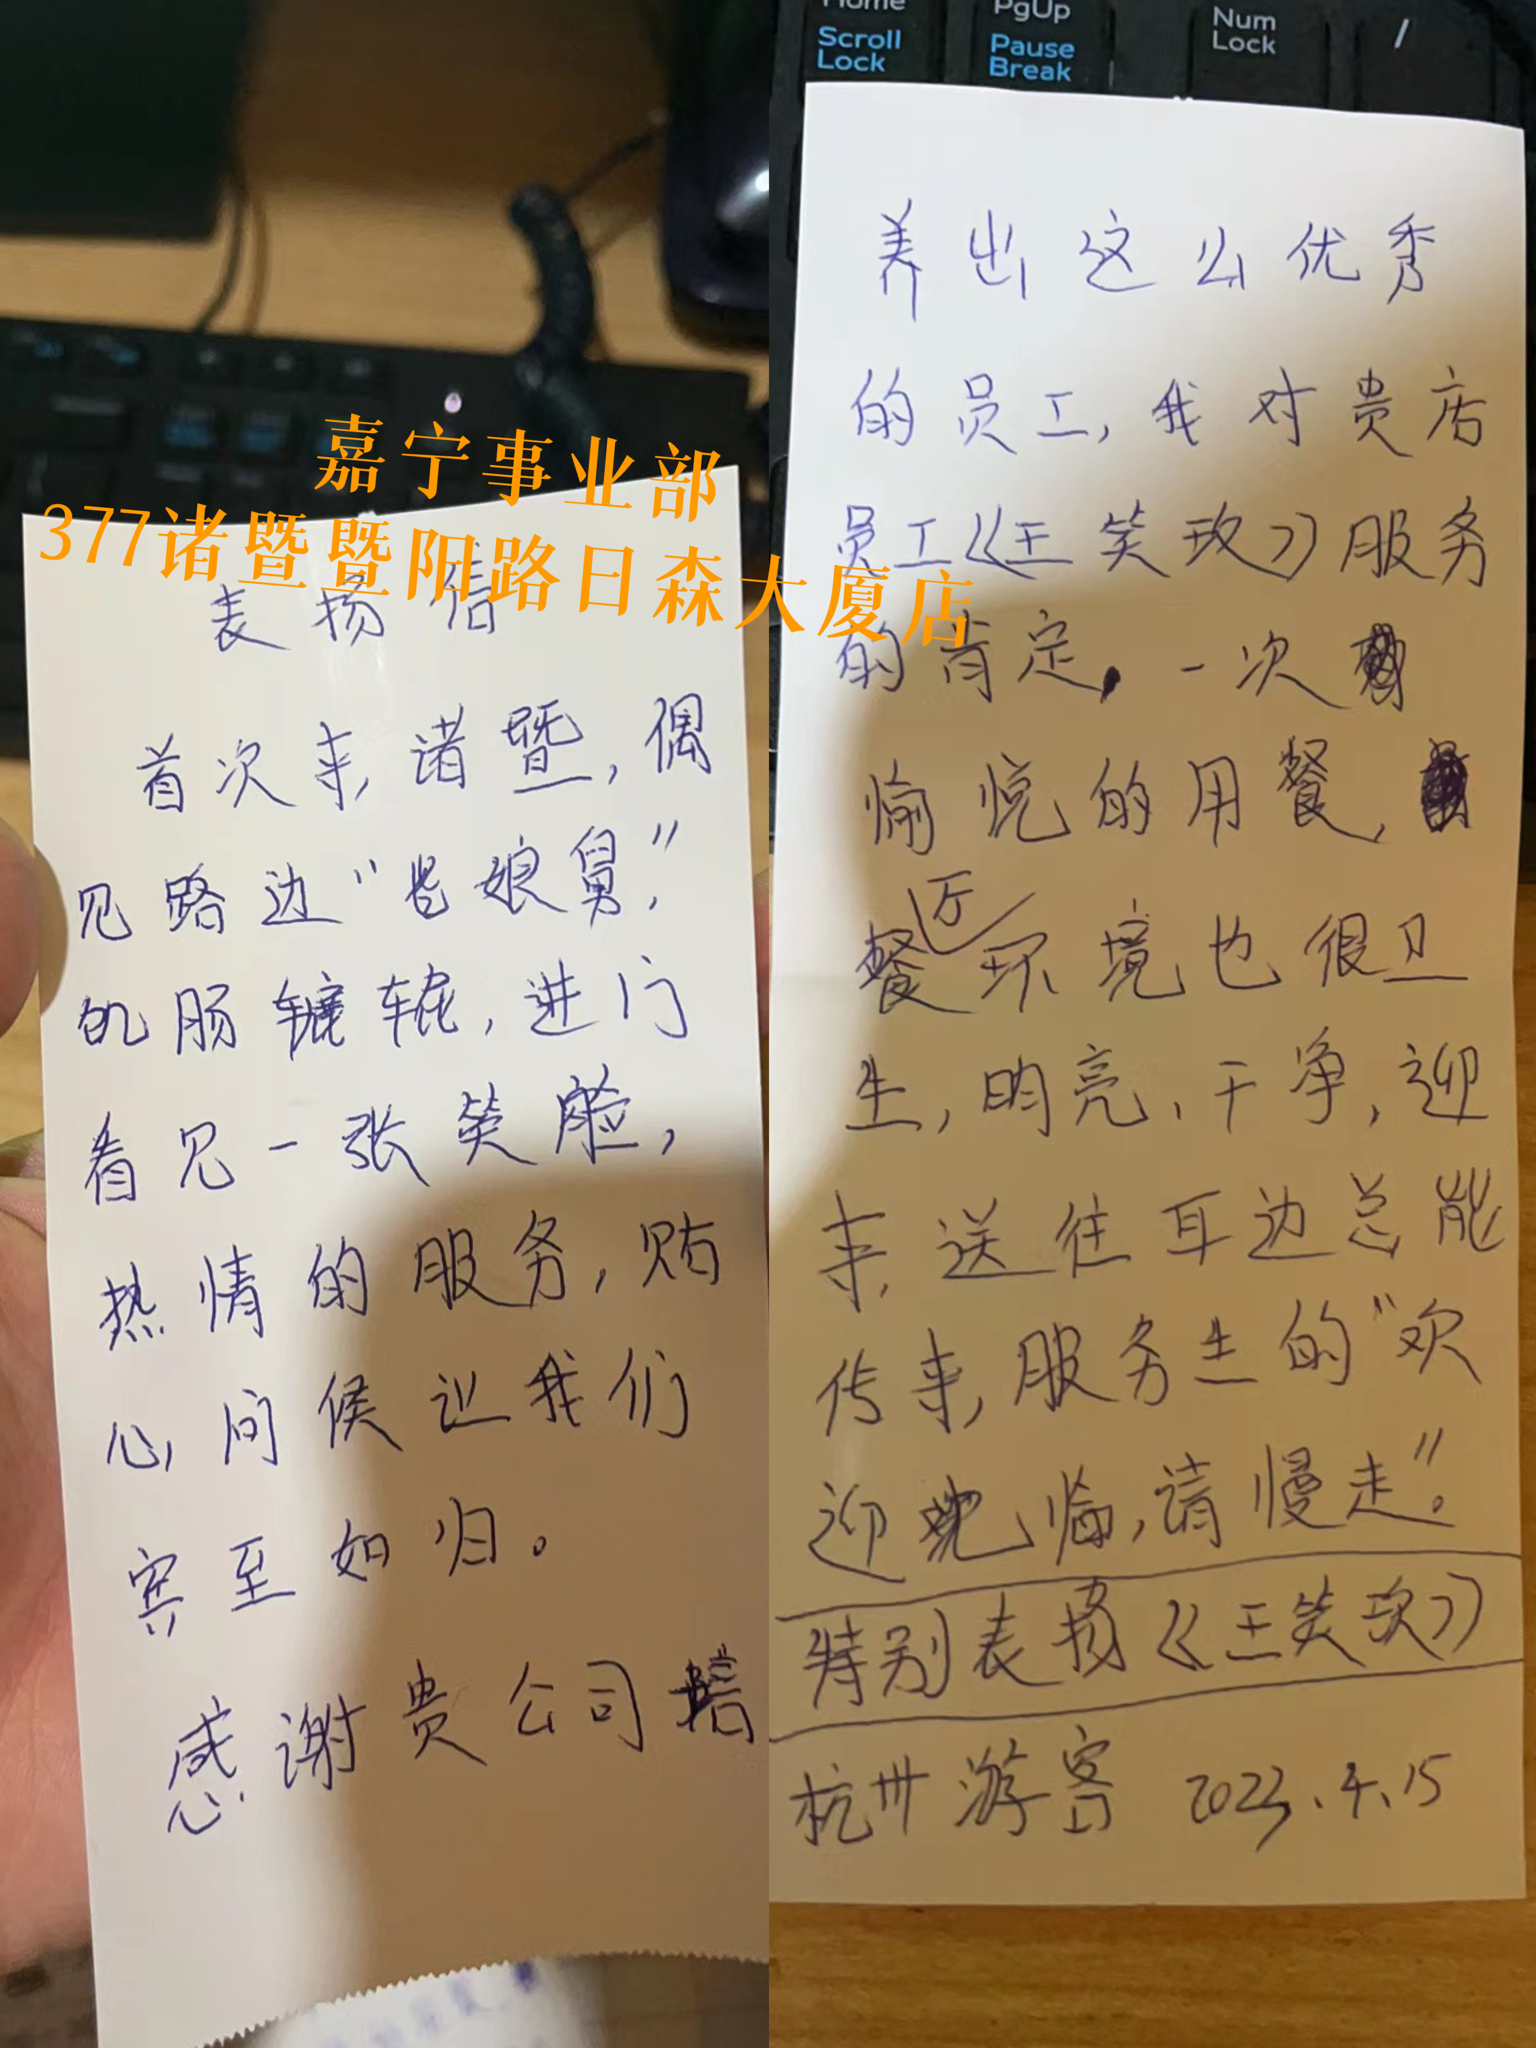 嘉宁事业部
377诸暨暨阳路日森大厦店
表扬信
首次来诸暨，偶
见路边“老娘舅”，
饥肠辘辘，进门
看见一张笑脸，
热情的服务，贴
心问候让我们
宾至如归。
感谢贵公司培
Home
PgUp
Num
Lock
/
Scroll
Lock
Pause
Break
养出这么优秀
的员工，我对贵店
员工《王笑玫》服务
的肯定，一次
愉悦的用餐，
餐厅环境也很卫
生，明亮，干净，迎
来送往耳边总能
传来服务生的“欢
迎光临，请慢走”。
特别表扬《王笑玫》
杭州游客 2023.4.15